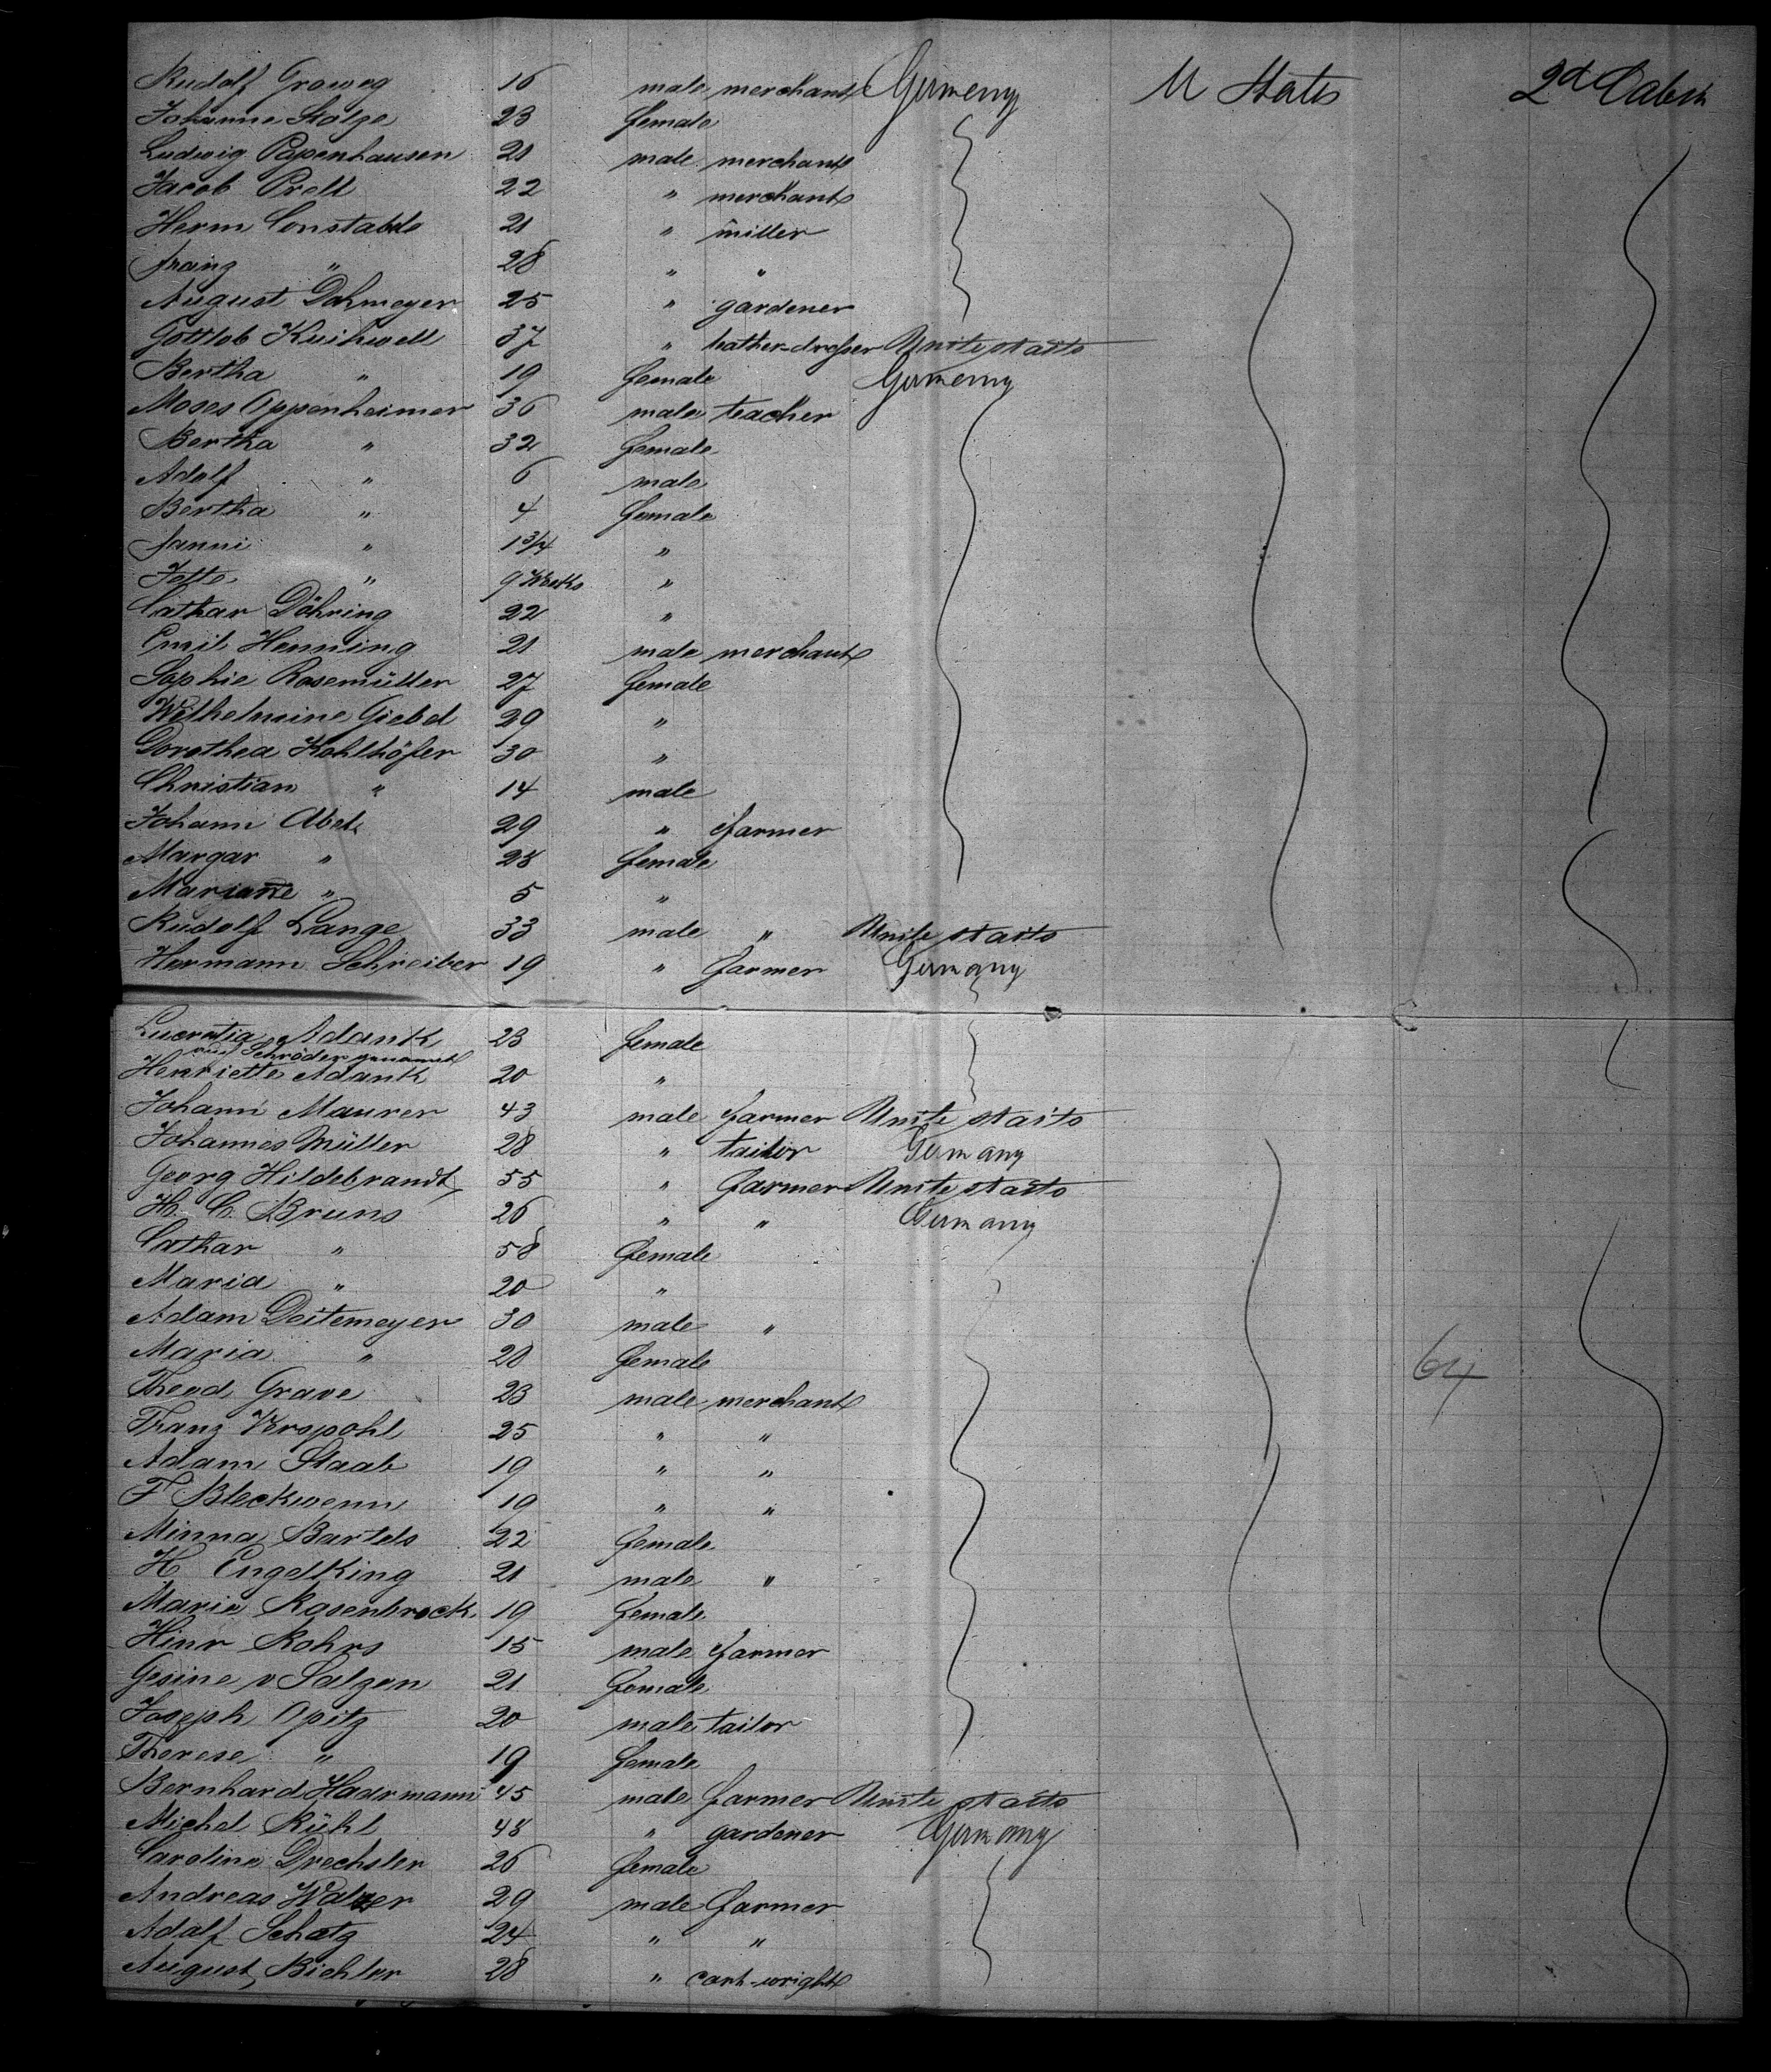 Rudolf Groweg 16 male merchant Germeny U States 2d Cabin
Johanne Stolze 23 female
Ludwig Papenhausen 21 male merchant
Jacob Prell 22 " merchant
Herm Constabels 21 " miller
Franz " 28 " "
August Dohmeyer 25 " gardener
Gottlob 37 " Unite staits
Bertha " 19 female Germeny
Moses Oppenheimer 36 male teacher
Bertha " 32 female
Adolf " 6 male
Bertha " 4 female
Fanni " 1 3/4 "
Jette " 9 Weeks "
Cathar Döhring 22 "
Emil Henning 21 male merchant
Sophie Rosemüller 27 female
Wilhelmine Giebel 29 "
Dorothea Kohlhöfer 30 "
Christian " 14 male
Johann Abel 29 " farmer
Margar " 28 female
Marianne " 5 "
Rudolf Lange 33 male " Unite staits
Hermann Schreiber 19 " farmer Germany
Lucretia Adank 23 female
Schröder genannt
Henriette Adank 20 "
Johann Maurer 43 male farmer Unite staits
Johannes Müller 28 " tailor Germany
Georg Hildebrandt 55 " farmer Unite staits
H. C. Bruns 26 " " Germany
Cathar " 58 female
Maria " 20 "
Adam Deitemeyer 30 male "
Maria " 28 female
Theod Grave 23 male merchant
Franz Verspohl 25 " "
Adam Staab 19 " "
F Bleckwenn 19 " "
Minna Bartels 22 female
H Engelking 21 male "
Marie Rosenbrock 19 female
Hinr Rohrs 15 male farmer
Gesine v Salzen 21 female
Joseph Opitz 20 male tailor
Therese " 19 female
Bernhard Haarmann 45 male farmer Unite staits
Michel Rühl 48 " gardener Germany
Caroline Drechsler 26 female
Andreas Walzer 29 male farmer
Adolf Schatz 24 " "
August Bichler 28 " cart-wright
64